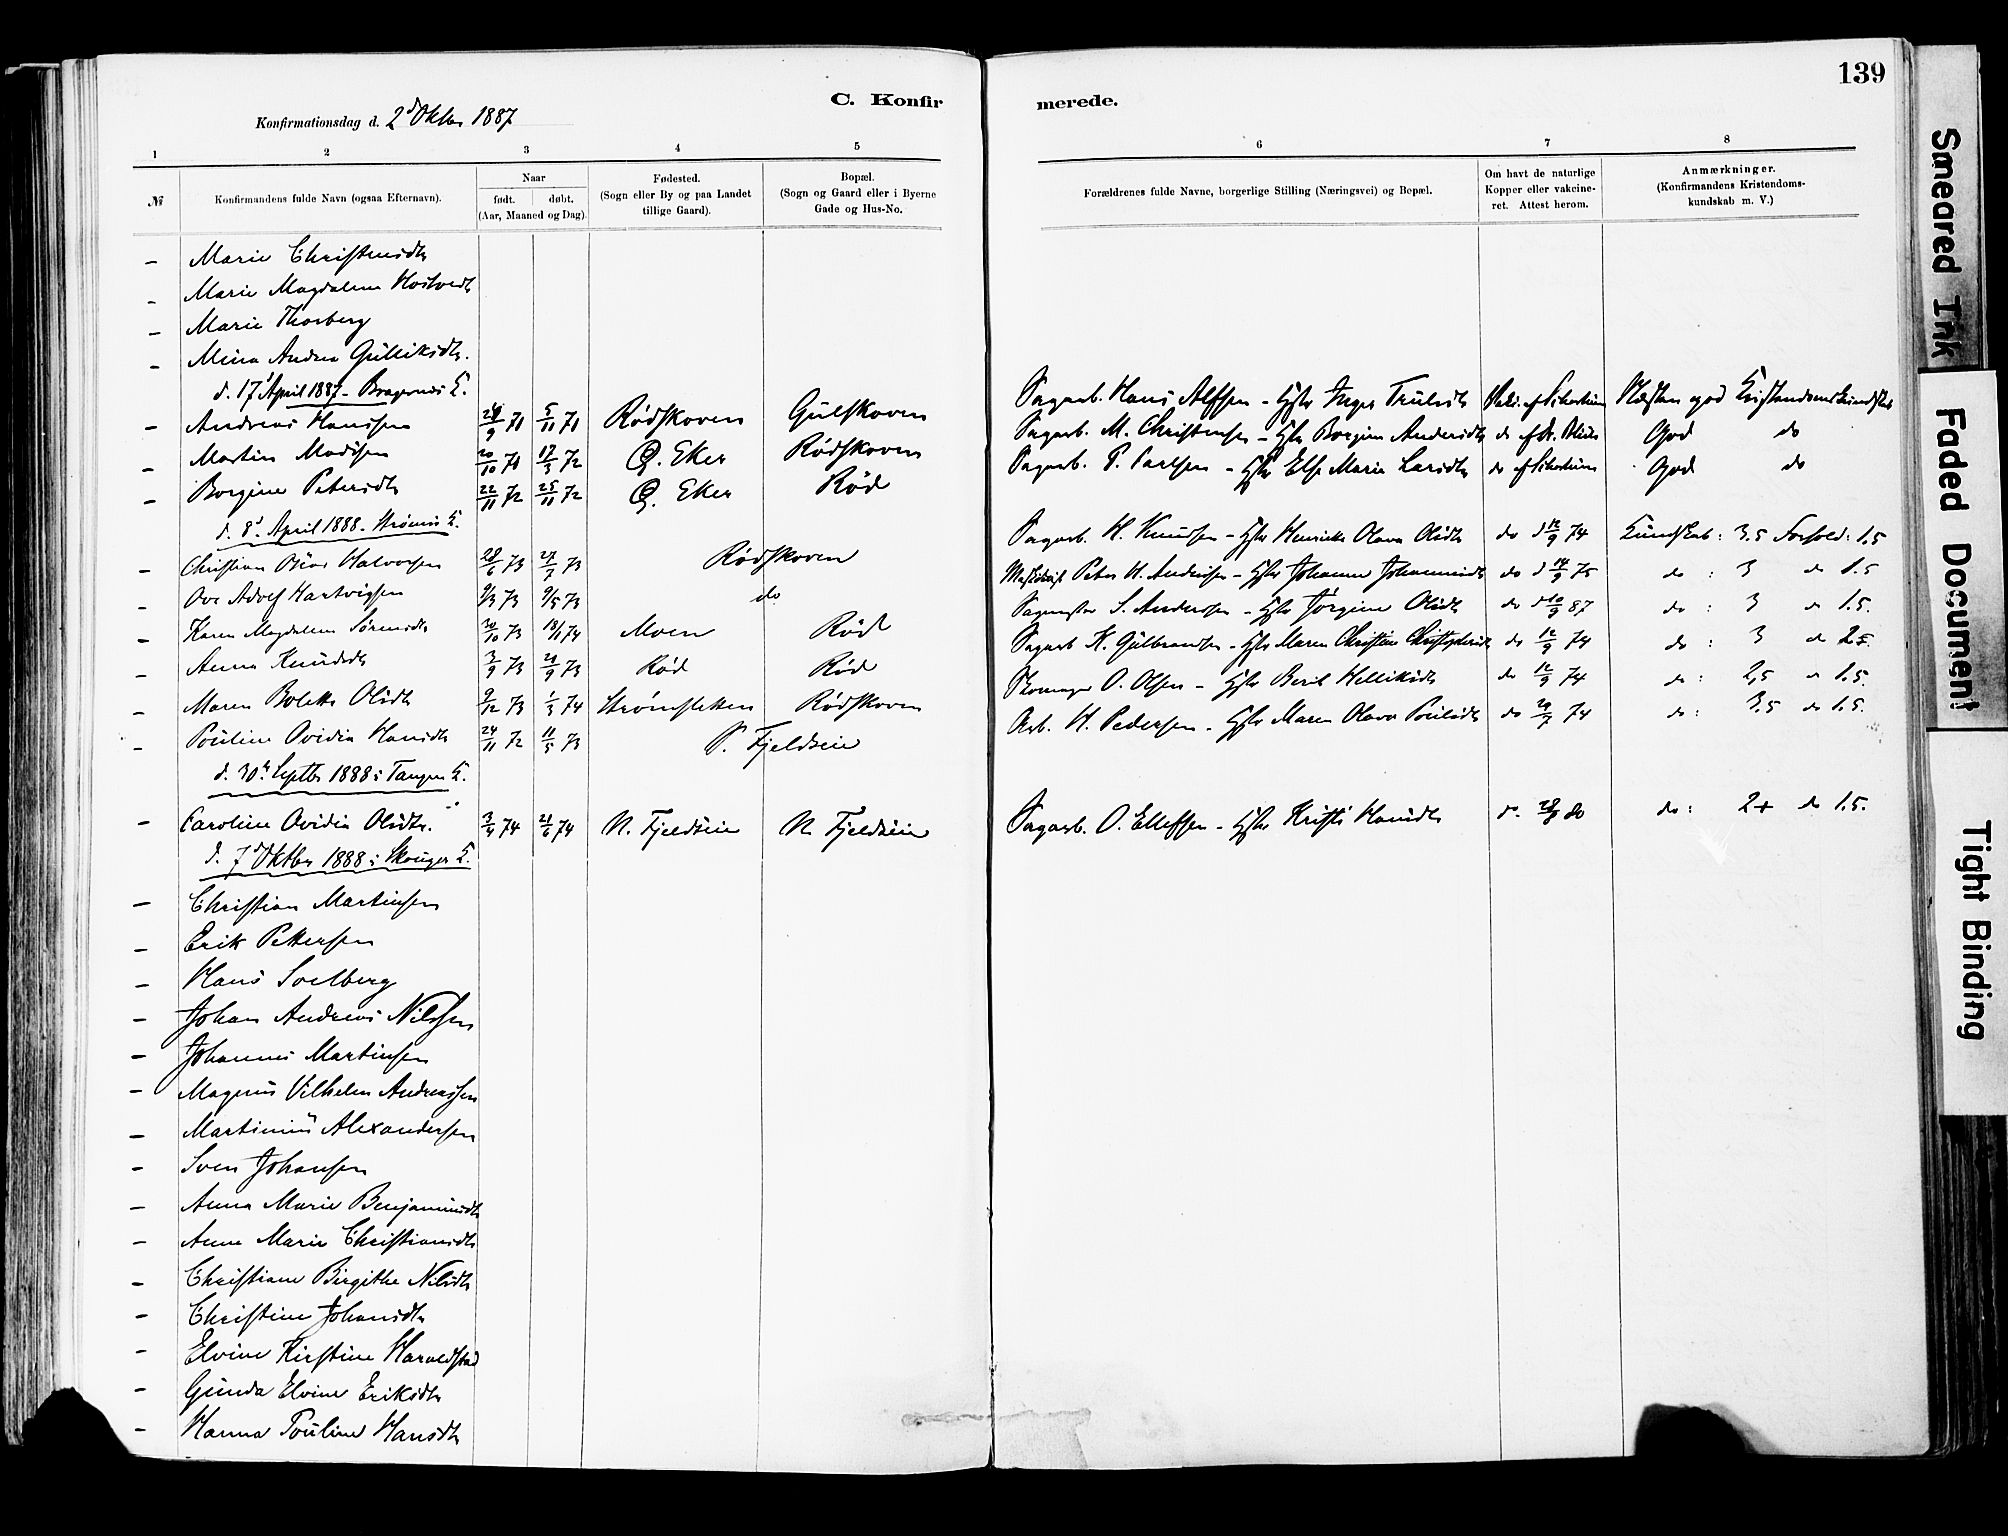 139
C. Konfir merede.
Konfirmationsdag d. 2d Oktbr 1887
1 2 3 4 5 6 7 8
№
Konfirmandens fulde Navn (ogsaa Efternavn).
Naar
født. døbt.
(Aar, Maaned og Dag).
Fødested.
(Sogn eller By og paa Landet
tillige Gaard).
Bopæl.
(Sogn og Gaard eller i Byerne
Gade og Hus-No.
Forældrenes fulde Navne, borgerlige Stilling (Næringsvei) og Bopæl.
Om havt de naturlige
Kopper eller vakcine-
ret. Attest herom.
Anmærkninger.
(Konfirmandens Kristendoms-
kundskab m. V.)
- Marie Christensdtr
- Marie Magdalene Hostvedt
- Marie Thorberg
- Mina Andrea Gulliksdtr.
d. 17d April 1887 - Bragernes K.
- Andreas Hanssen 9 71 5/11 71 Rødskoven Gulskoven Sagarb. Hans Alfsen - Hstr Inger Trulsdtr Næsten god Kristendomskundskab
- Martin Madsen 20/10 71 17/3 72 Ø. Eker Rødskoven Sagarb. M. Christensen - Hstr Borgine Andersdtr do God do
- Borgine Petersdtr 22/11 72 25/11 72 Ø. Eker Rød Sagarb. P. Carlsen - Hstr Else Marie Larsdtr do God do
d. 8d April 1888 - Strømsø K.
- Christian Oskar Halvorsen 28/6 73 27/7 73 Rødskoven Sagarb. H. Knudsen - Hstr Henrikke Olava Olsdtr do d 12/9 74 Kundskab: 3.5 Forhold: 1.5
- Ove Adolf Hartvigsen 9/3 73 9/5 73 do Peter H. Andersen - Hstr Johanne Johannesdtr do d 14/9 75 do: 3 do 1.5
- Karen Magdalene Sørensdtr 30/10 73 18/1 74 Moen Rød Sagmester S. Andersen - Hstr Jørgine Olsdtr do d 10/9 87 do: 3 do 1.5.
- Anna Knudsdtr 3/9 73 21/9 73 Rød Rød Sagarb K. Gulbrandsen - Hstr Maren Christine Christophersdtr do 12/9 74 do: 3 do 2.5.
- Maren Bolette Olsdtr 9/12 73 1/3 74 Strømsletten Rødskoven Skomager O. Olsen - Hstr Berit Helliksdtr do 12/9 74 do: 2,5 do 1.5.
- Pouline Ovidia Hansdtr 24/11 72 11/5 73 S. Fjeldseie Arb. H. Pedersen - Hstr Maren Olava Poulsdtr do 74 do: 3.5 do 1.5.
d. 30te Septbr 1888 i Tangen K.
- Caroline Ovidia Olsdtr. 3/4 74 21/6 74 N. Fjeldseie N Fjeldseie Sagarb. O. Ellefsen - Hstr Kristi Hansdtr do 80 do: 2+ do 1.5.
d. 7d Oktbr 1888 i Skouger K.
- Christian Martinsen
- Erik Pettersen
- Hans Solberg
- Johan Andreas Nilssen
- Johannes Martinsen
- Magnus Vilhelm Andreassen
- Martinius Alexandersen
- Sven Johansen
- Anna Marie Benjaminsdtr
- Anne Marie Christiansdtr
- Christiane Birgithe Nilsdtr
- Christine Johansdtr
- Elvine Kirstine Haraldstad
- Gunda Elvine Eriksdtr
- Hanna Pouline Hansdtr
Smeared Ink
Faded Document
Tight Binding